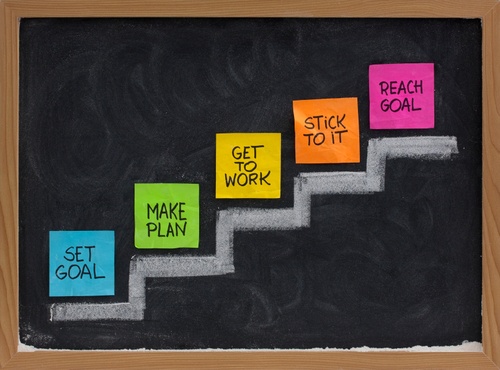 SET
GOAL
MAKE
PLAN
GET
TO
WORK
STICK
TO IT
REACH
GOAL